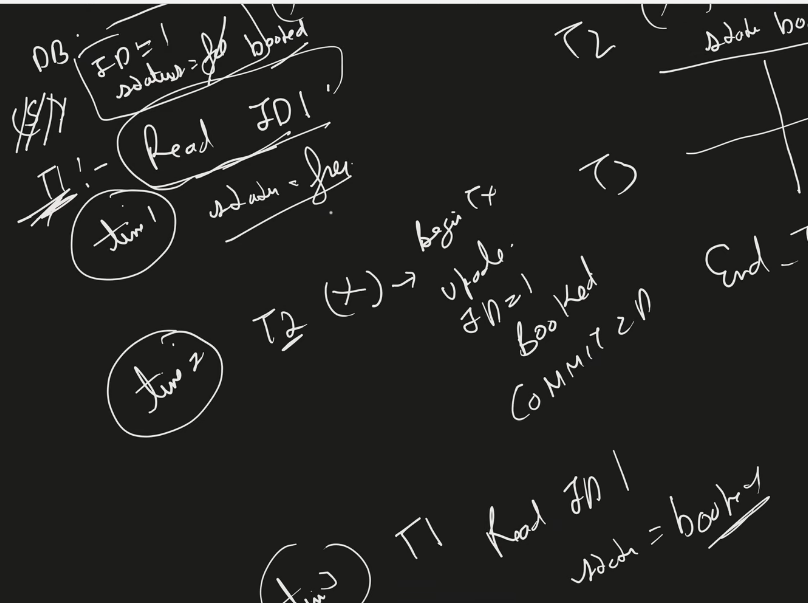 DB:
ID = 1
status = booked
T1 :-
Read ID 1
time 1
status = free
T2
begin Tx
update
ID = 1
Booked
COMMITED
time 2
T1 Read ID 1
state = booked
time 3
T2
state bo
T3
End - T